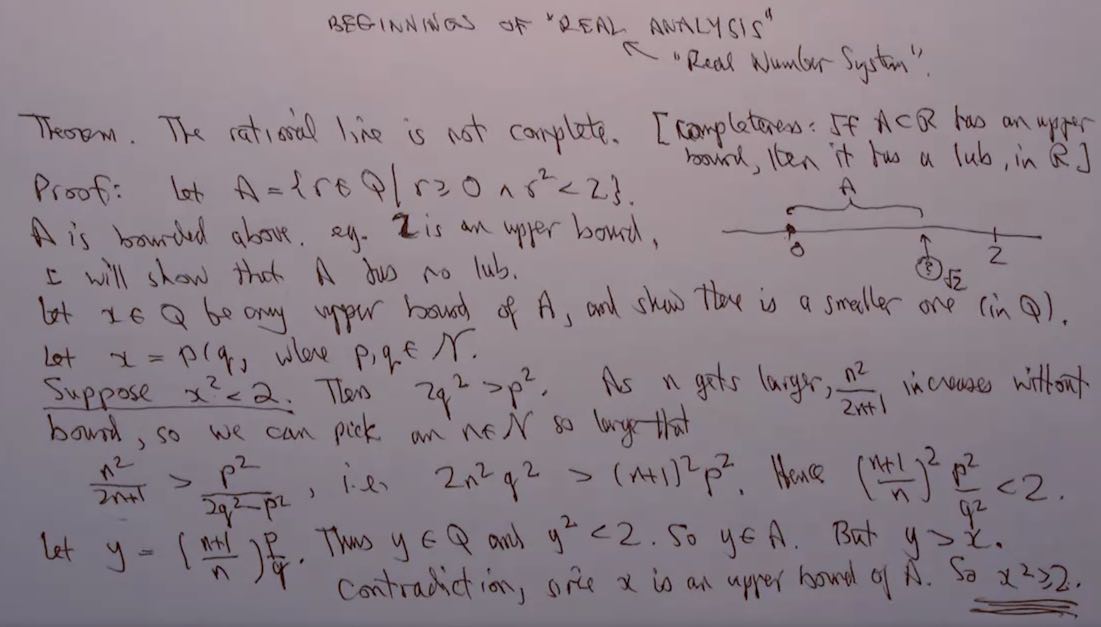 BEGINNINGS OF "REAL ANALYSIS"
"Real Number System".
Theorem. The rational line is not complete. [completeness: If A⊂R has an upper
bound, then it has a lub, in R.]
Proof: Let A = {r ∈ Q | r ≥ 0 ∧ r² < 2}.
A
A is bounded above. eg. 2 is an upper bound.
0 ? √2 2
I will show that A has no lub.
Let x ∈ Q be any upper bound of A, and show there is a smaller one (in Q).
Let x = p/q, where p, q ∈ N.
Suppose x² < 2. Then 2q² > p². As n gets larger, n²/2n+1 increases without
bound, so we can pick an n ∈ N so large that
n²/2n+1 > p²/2q²-p², i.e. 2n²q² > (n+1)²p². Hence (n+1/n)² p²/q² < 2.
Let y = (n+1/n)p/q. Thus y ∈ Q and y² < 2. So y ∈ A. But y > x.
Contradiction, since x is an upper bound of A. So x² ≥ 2.